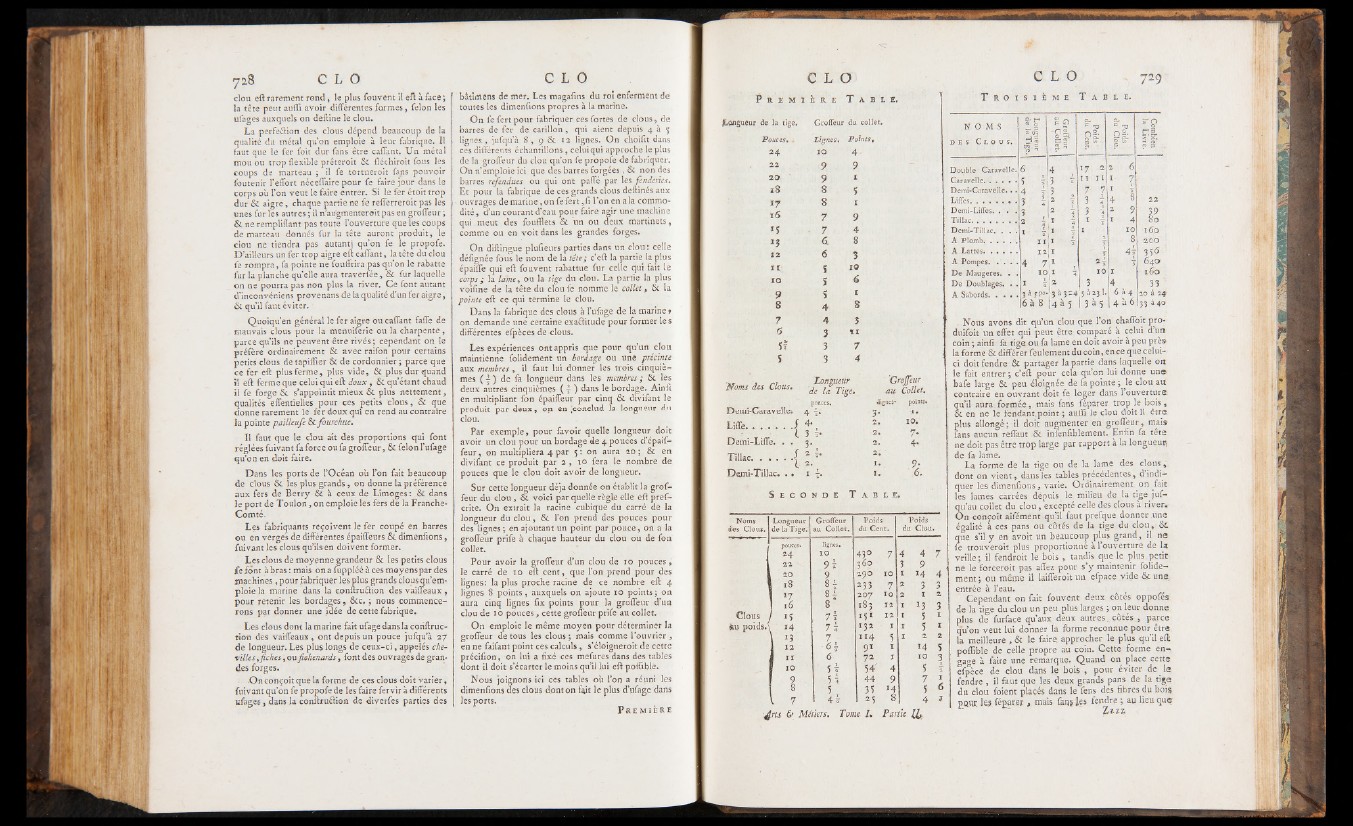 728 C L O C L O
clou est rarement rond, le plus souvent il est à face;
la tête peut aussi avoir différentes formes, selon les
usages auxquels on destine le clou.
La perfection des clous dépend beaucoup de la
qualité du métal qu'on emploie à leur fabrique. Il
faut que le fer soit dur sans être cassant. Un métal
mou ou trop flexible prêteroit & fléchiroit sous les
coups de marteau ; il se tortueroit sans pouvoir
soutenir l'effort nécessaire pour se faire jour dans le
corps où l'on veut le faire entrer. Si le fer étoit trop
dur & aigre, chaque partie ne se resserreroit pas les
unes sur les autres; il n'augmenteroit pas en grosseur;
& ne remplissant pas toute l'ouverture que les coups
de marteau donnés sur la tête auront produit, le
clou ne tiendra pas autant qu'on se le propose.
D'ailleurs un fer trop aigre est cassant, la tête du clou
se rompra, sa pointe ne souffrira pas qu'on le rabatte
sur la planche qu'elle aura traversée, & sur laquelle
on ne pourra pas non plus la river. Ce sont autant
d'inconvéniens provenans de la qualité d'un fer aigre,
& qu'il faut éviter.
Quoiqu'en général le fer aigre ou cassant fasse de
mauvais clous pour la menuiserie ou la charpente,
parce qu'ils ne peuvent être rivés; cependant on le
préfère ordinairement & avec raison pour certains
petits clous de tapissier & de cordonnier; parce que
ce fer est plus ferme, plus vide, & plus dur quand
il est ferme que celui qui est doux, & qu'étant chaud
il se forge & s'appointit mieux & plus nettement,
qualités essentielles pour ces petits clous, & que
donne rarement le fer doux qui en rend au contraire
la pointe pailleuse & fourchue.
Il faut que le clou ait des proportions qui sont
réglées suivant sa force ou sa grosseur, & selon l'usage
qu'on en doit faire.
Dans les ports de l'Océan où l'on fait beaucoup
de clous & les plus grands, on donne la préférence
aux fers de Berry & à ceux de Limoges: & dans
le port de Toulon, on emploie les fers de la Franche-
Comté.
Les fabriquants reçoivent le fer coupé en barres
ou en verges de différentes épaisseurs & dimensions,
suivant les clous qu'ils en doivent former.
Les clous de moyenne grandeur & les petits clous
se font à bras: mais on a suppléé à ces moyens par des
machines, pour fabriquer les plus grands clous qu'em-
ploie la marine dans la construction des vaisseaux,
pour retenir les bordages, &c. ; nous commence-
rons par donner une idée de cette fabrique.
Les clous dont la marine fait usage dans la construc-
tion des vaisseaux, ont depuis un pouce jusqu'à 27
de longueur. Les plus longs de ceux-ci, appelés che-
villes, fiches, ou fichenards, sont des ouvrages de gran-
des forges.
On conçoit que la forme de ces clous doit varier,
suivant qu'on se propose de les faire servir à différents
usages, dans la construction de diverses parties des
bâtimens de mer. Les magasins du roi enferment de
toutes les dimensions propres à la marine.
On se sert pour fabriquer ces sortes de clous, de
barres de fer de carillon, qui aient depuis 4 à 5
lignes, jusqu'à 8, 9 & 12 lignes. On choisit dans
ces différents échantillons, celui qui approche le plus
de la grosseur du clou qu'on se propose de fabriquer.
On n'emploie ici que des barres forgées, & non des
barres refendues ou qui ont passé par les fenderies.
Et pour la fabrique de ces grands clous destinés aux
ouvrages de marine, on se sert, si l'on en a la commo-
dité, d'un courant d'eau pour faire agir une machine
qui meut des soufflets & un ou deux martinets,
comme on en voit dans les grandes forges.
On distingue plusieurs parties dans un clou: celle
désignée sous le nom de la tête; c'est la partie la plus
épaisse qui est souvent rabattue sur celle qui fait le
corps; la lame, ou la tige du clou. La partie la plus
voisine de la tête du clou se nomme le collet, & la
pointe est ce qui termine le clou.
Dans la fabrique des clous à l'usage de la marine,
on demande une certaine exactitude pour former les
différentes espèces de clous.
Les expériences ont appris que pour qu'un clou
maintienne solidement un bordage ou une précinte
aux membres, il faut lui donner les trois cinquiè-
mes (3/5) de sa longueur dans les membres; & les
deux autres cinquièmes (2/5) dans le bordage. Ainsi
en multipliant son épaisseur par cinq & divisant le
produit par deux, on en conclud la longueur du
clou.
Par exemple, pour savoir quelle longueur doit
avoir un clou pour un bordage de 4 pouces d'épais-
seur, on multipliera 4 par 5: on aura 20; & en
divisant ce produit par 2, 10 sera le nombre de
pouces que le clou doit avoir de longueur.
Sur cette longueur déja donnée on établit la gros-
seur du clou, & voici par quelle règle elle est pres-
crite. On extrait la racine cubique du carré de la
longueur du clou, & l'on prend des pouces pour
des lignes; en ajoutant un point par pouce, on a la
grosseur prise à chaque hauteur du clou ou de son
collet.
Pour avoir la grosseur d'un clou de 10 pouces,
le carré de 10 est cent, que l'on prend pour des
lignes: la plus proche racine de ce nombre est 4
lignes 8 points, auxquels on ajoute 10 points; on
aura cinq lignes six points pour la grosseur d'un
clou de 10 pouces, cette grosseur prise au collet.
On emploie le même moyen pour déterminer la
grosseur de tous les clous; mais comme l'ouvrier,
en ne faisant point ces calculs, s'éloigneroit de cette
précision, on lui a fixé ces mesures dans des tables
dont il doit s'écarter le moins qu'il lui est possible.
Nous joignons ici ces tables où l'on a réuni les
dimensions des clous dont on fait le plus d'usage dans
les ports.
PREMIÈRE
C L O C L O 729
PREMIÈRE TABLE.
Longueur de la tige. Grosseur du collet.
Pouces. Lignes. Points.
24 10 4
22 9 9
20 9 1
18 8 5
17 8 1
16 7 9
15 7 4
13 6 8
12 6 3
11 5 10
10 5 6
9 5 1
8 4 8
7 4 3
6 3 11
5½ 3 7
5 3 4
Noms des Clous. Longueur de la Tige. Grosseur au Collet.
pouces. lignes. points.
Demi-Caravelle. 4 ½. 3. 1.
Lisse. 4. 2. 10.
3 ½. 2. 7.
Demi-Lisse. 3. 2. 4.
Tillac. 2 ½. 2.
2. 1. 9.
Demi-Tillac. 1 ½. 1. 6.
SECONDE TABLE.
Noms des Clous. Longueur de la Tige. Grosseur au Collet. Poids du Cent. Poids du Clou.
pouces. lignes.
24 10 430 7 4 4 7
22 9½ 360 3 9
20 9 290 10 1 14 4
18 8½ 233 7 2 3 3
17 8¼ 207 10 2 1 2
16 8 183 12 1 13 3
Clous 15 7½ 151 12 1 5 1
au poids. 14 7¼ 132 1 1 5 1
13 7 114 5 1 2 2
12 6½ 91 1 14 5
11 6 72 1 10 3
10 5½ 54 4 5
9 5¼ 44 9 7 1
8 5 35 14 5 6
7 4½ 25 8 4
Arts & Métiers. Tome I. Partie II.
TROISIÈME TABLE.
NOMS DES CLOUS. Longueur de la Tige. Grosseur au Collet. Poids du Cent. Poids du Clou. Combien à la Livre.
Double Caravelle. 6 4 17 2 2 6
Caravelle. 5 3 11 11 1 7
Demi-Caravelle. 4 3 7 7 1
Lisses. 3 2 3 4 8 22
Demi-Lisses. 3 2 3 2 9 39
Tillac. 2 1 1 1 4 80
Demi-Tillac. 1 1 1 10 160
A Plomb. 11 1 8 200
A Lattes. 12 1 4½ 356
A Pompes. 4 7 1 2 640
De Maugeres. 10 1 10 1 160
De Doublages. 1 2 3 4 33
A Sabords. 3 à 5 po. 3 à 3 5 à 23 l. 6 à 4 20 à 24
6 à 8 4 à 5 3 à 5 4 à 6 33 à 40
Nous avons dit qu'un clou que l'on chassoit pro-
duisoit un effet qui peut être comparé à celui d'un
coin; ainsi sa tige ou sa lame en doit avoir à peu près
la forme & différer seulement du coin, en ce que celui-
ci doit fendre & partager la partie dans laquelle on
le fait entrer; c'est pour cela qu'on lui donne une
base large & peu éloignée de sa pointe; le clou au
contraire en ouvrant doit se loger dans l'ouverture
qu'il aura formée, mais sans séparer trop le bois,
& en ne le fendant point; aussi le clou doit il être
plus allongé; il doit augmenter en grosseur, mais
sans aucun ressaut & insensiblement. Enfin sa tête
ne doit pas être trop large par rapport à la longueur
de sa lame.
La forme de la tige ou de la lame des clous,
dont on vient, dans les tables précédentes, d'indi-
quer les dimensions, varie. Ordinairement on fait
les lames carrées depuis le milieu de la tige jus-
qu'au collet du clou, excepté celle des clous à river.
On conçoit aisément qu'il faut presque donner une
égalité à ces pans ou côtés de la tige du clou, &
que s'il y en avoit un beaucoup plus grand, il ne
se trouveroit plus proportionné à l'ouverture de la
vrille; il fendroit le bois, tandis que le plus petit
ne le forceroit pas assez pour s'y maintenir solide-
ment; ou même il laisseroit un espace vide & une
entrée à l'eau.
Cependant on fait souvent deux côtés opposés
de la tige du clou un peu plus larges; on leur donne
plus de surface qu'aux deux autres côtés, parce
qu'on veut lui donner la forme reconnue pour être
la meilleure, & le faire approcher le plus qu'il est
possible de celle propre au coin. Cette forme en-
gage à faire une remarque. Quand on place cette
espèce de clou dans le bois, pour éviter de le
fendre, il faut que les deux grands pans de la tige
du clou soient placés dans le sens des fibres du bois
pour les séparer, mais sans les fendre; au lieu que
Zzzz